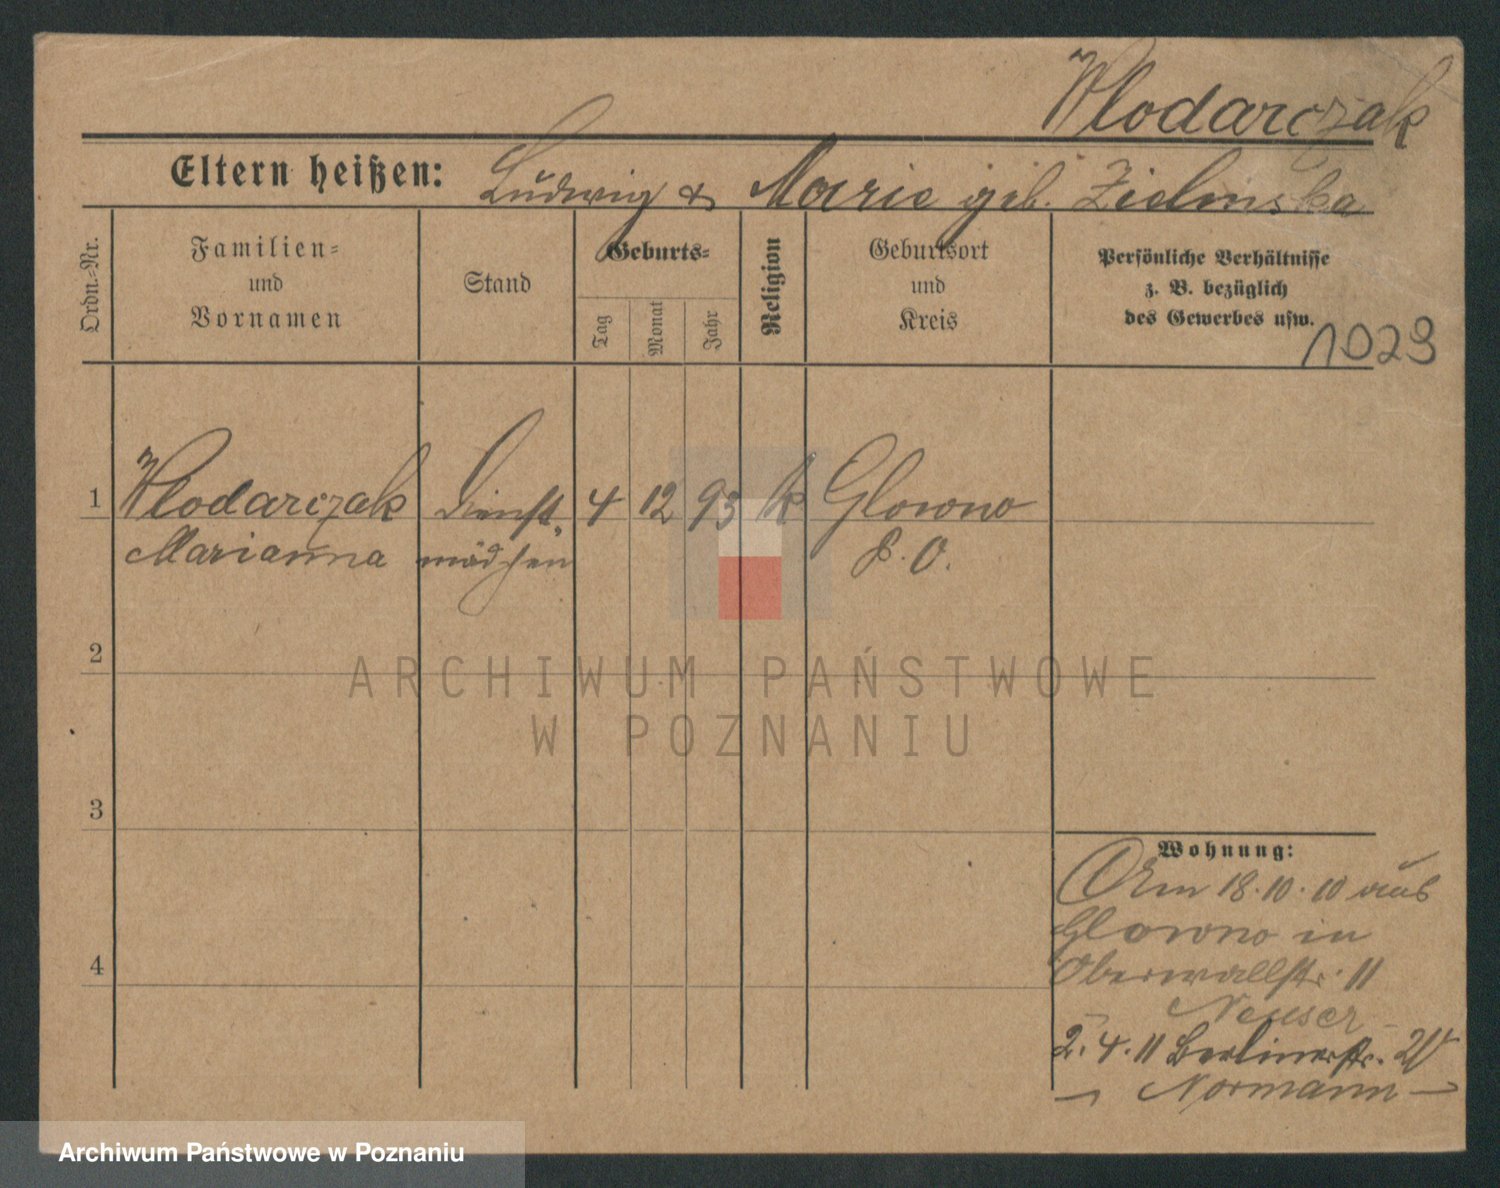 Wlodarczak
Eltern heißen: Ludwig & Marie geb. Zielinska
Ordn.-Nr.
Familien-
und
Vornamen
Stand
Geburts-
Tag
Monat
Jahr
Religion
Geburtsort
und
Kreis
Persönliche Verhältnisse
z. B. bezüglich
des Gewerbes usw.
1029
1 Wlodarczak Dienst- 4 12 93 k Glowno
Marianna mädchen P. O.
2
ARCHIWUM PAŃSTWOWE
W POZNANIU
3
Wohnung:
Am 18.10.10 aus
Glowno in
Oberwallstr. 11
Neuser
4
2.4.11 Berlinerstr. 20
Normann
Archiwum Państwowe w Poznaniu